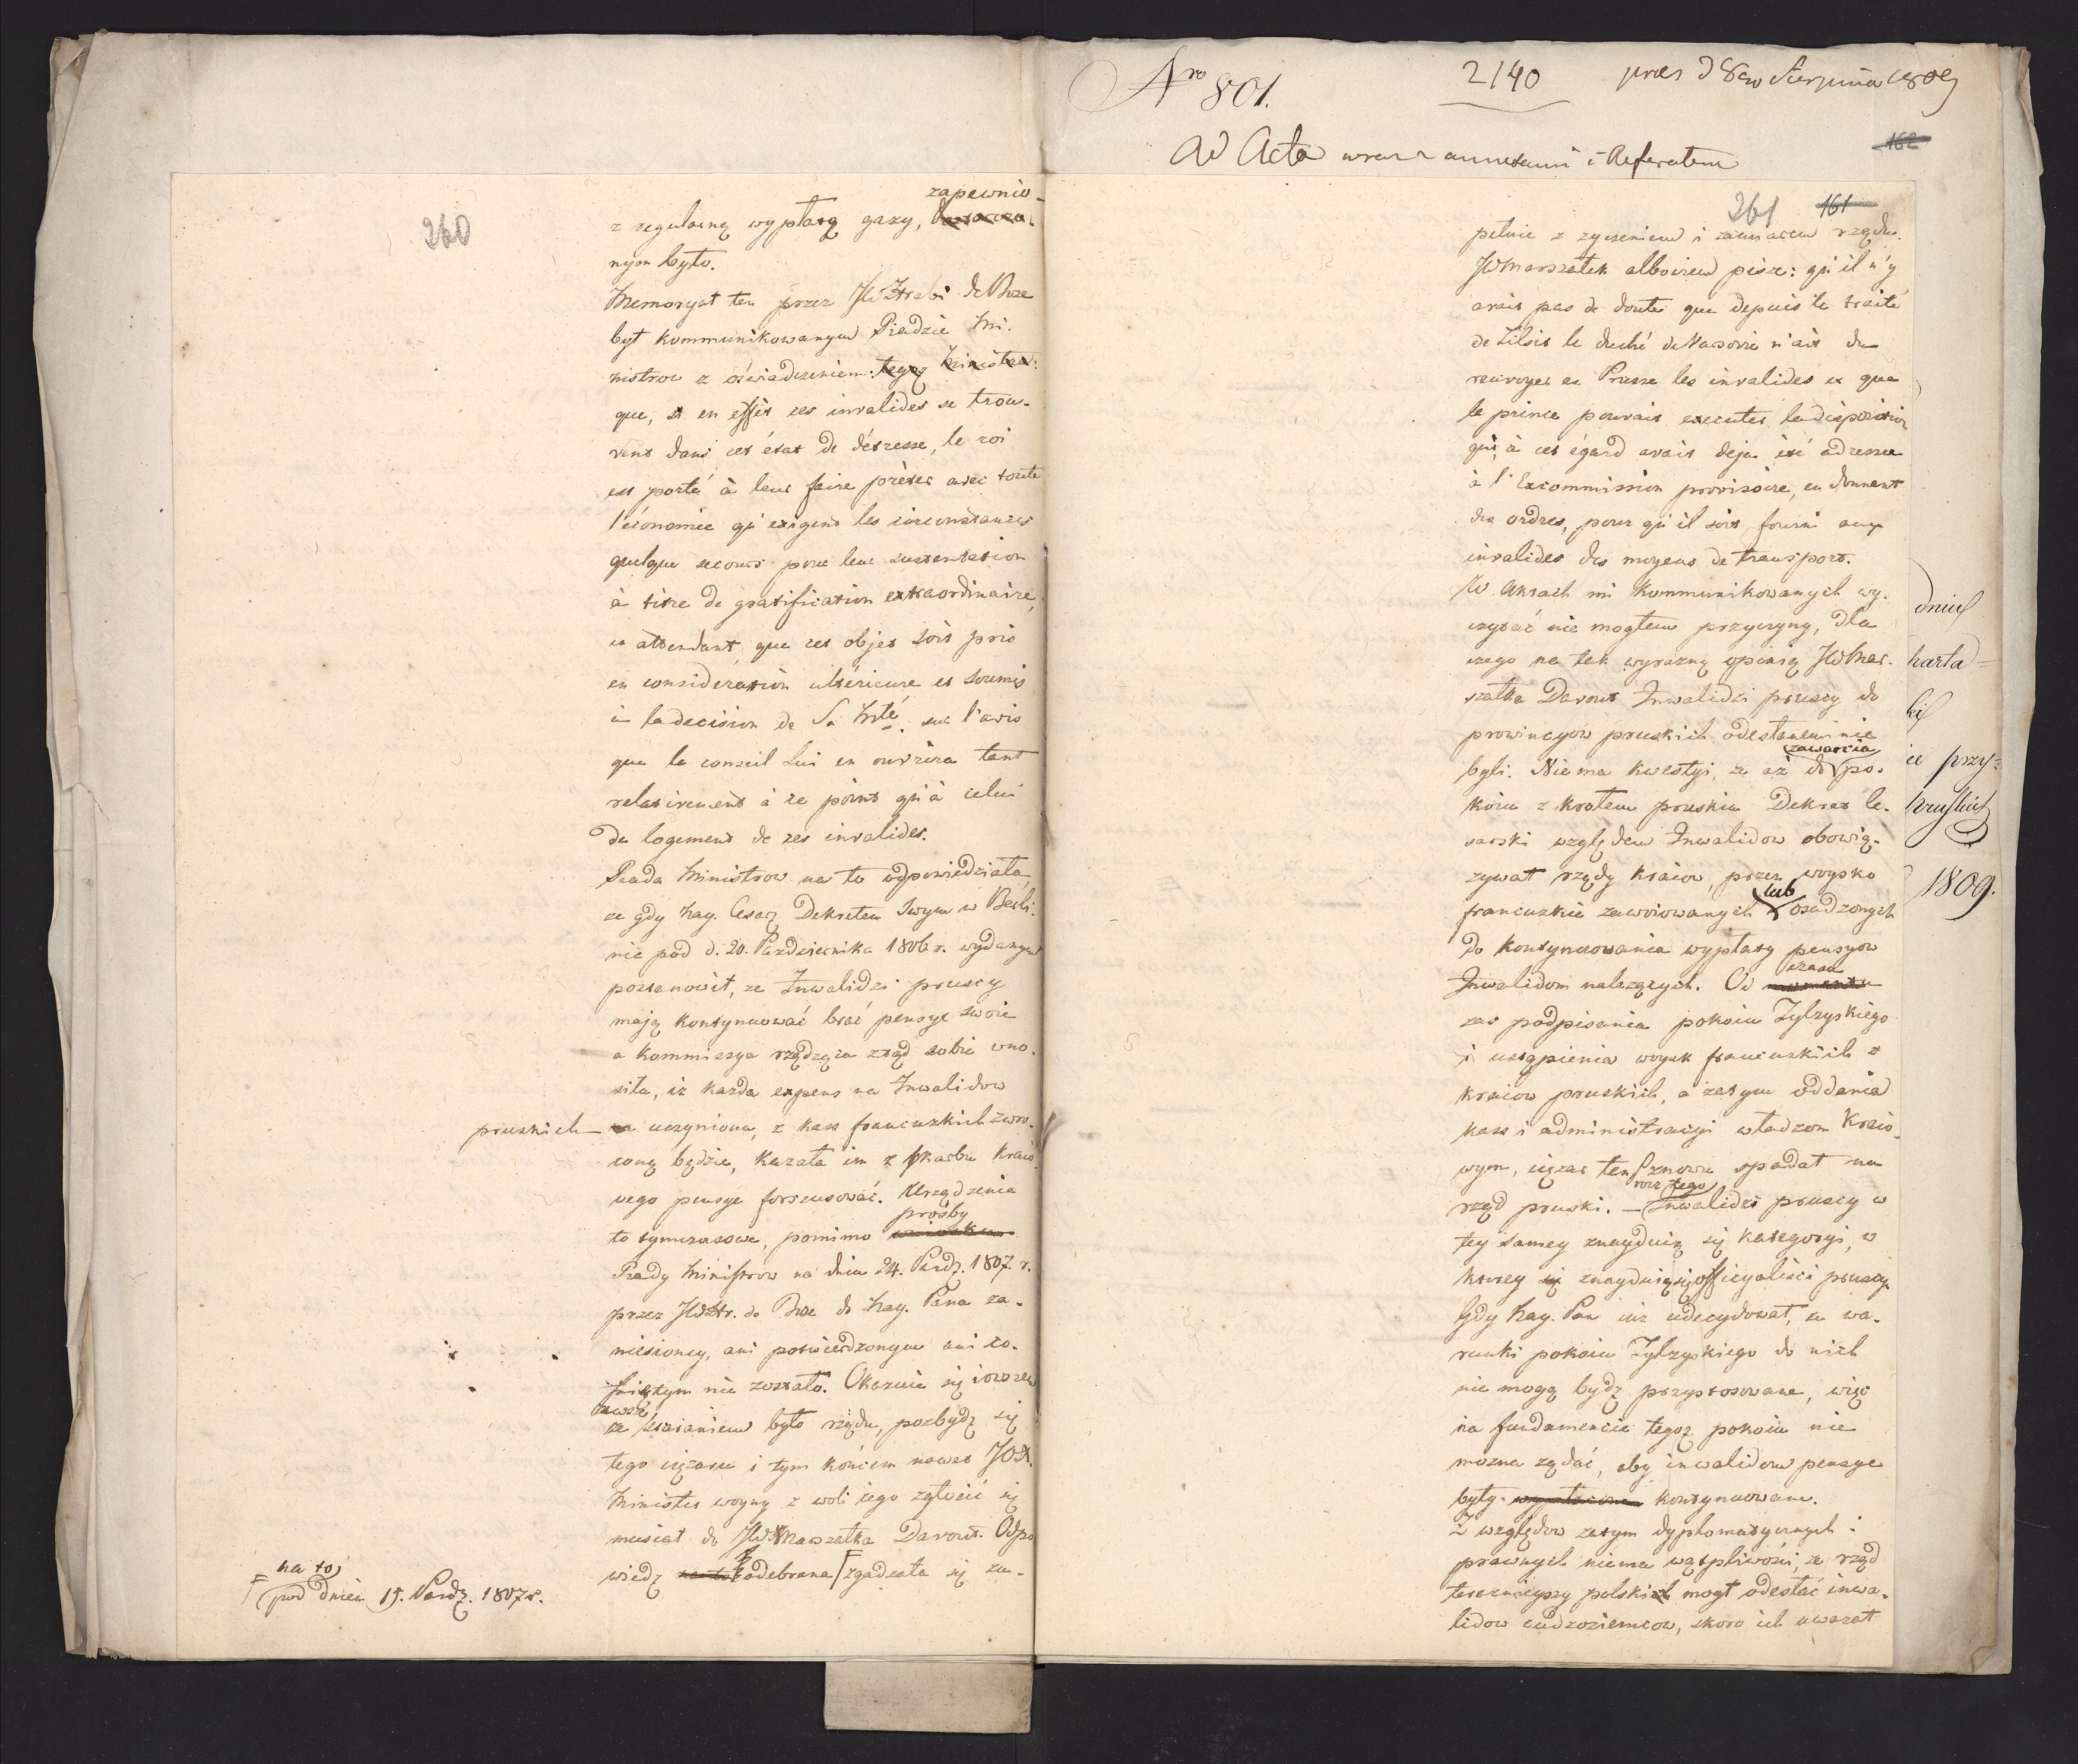 260
zapewnio-
z regularną wypłatą gazy,
nym było.
Memoryał ten przez JW Hrabi de Boze
był kommunikowanym Radzie Mi-
nistrow z oświadczeniem: tegoż Ministra:
que, si en effet ces invalides se trou-
vent dans cet état de détresse, le roi
est porté à leur faire prêter avec toute
l'économie qu'exigent les circonstances
quelque secours pour leur sustentation
à titre de gratification extraordinaire,
en attendant que cet objet soit pris
en considération ultérieure et soumis
à la decision de Sa Mté. sur l'avis
que le conseil Lui en ouvrira tant
relativement à ce point qu'à celui
du logement de ces invalides.
Rada Ministrow na to odpowiedziała
że gdy Nay. Cesarz Dekretem Swym w Berli-
nie pod d. 20. Października 1806 r. wydanym
postanowił, że Inwalidzi pruscy
mają kontynuować brać pensye swoie
a Kommissya rządząca ztąd sobie wno-
siła, iż każda expens na Inwalidow
pruskich uczyniona, z kass francuzkich zwro-
coną będzie, kazała im z skarbu kraio-
wego pensye forszusować. Urządzenie
prośby
to tymczasowe, pomimo wniosku
Rady Ministrow na dniu 24. Paźdz. 1807. r.
przez JW Hr. de Boze do Nay. Pana za-
niesioney, ani potwierdzonym ani co-
fniętym nie zostało. Okazuie się iowszem
zawsze
że staraniem było rządu, pozbydź się
tego ciężaru i tym końcem nawet JOX.
Minister woyny z woli iego zgłosić się
musiał do JW Marszałka Davout. Odpo
wiedź na to odebrana zgadzała się zu-
na to
pod dniem 15. Paźdz. 1807 r.
Nro 801.
2140
pres d 8go Sierpnia 1809
162
Ad Acta wraz z annexami i Referatem
261 161
pełnie z życzeniem i zamiarem rządu.
JW Marszałek albowiem pisze: qu'il n'y
avait pas de doute que depuis le traité
de Tilsit le duché de Varsovie n'ait du
renvoyer en Prusse les invalides et que
le prince pouvait executer la disposition
qui, à cet égard avait deja été adressée
à l'Excommission provisoire, en donnant
des ordres, pour qu'il soit fourni aux
invalides des moyens de transport.
W aktach mi kommunikowanych wy-
czytać nie mogłem przyczyny, dla
czego na tak wyraźną opinią JW Mar-
szałka Davout Inwalidzi pruscy do
prowincyow pruskich odesłanemi nie
zawarcia
byli. Niema kwestyi, że aż do po-
koiu z krolem pruskim Dekret Ce-
sarski względem Inwalidow obowią-
zywał rządy kraiow, przez woysko
lub
francuzkie zawoiowanych osadzonych
do kontynuowania wypłaty pensyow
czasu
Inwalidom należących. Od momentu
zaś podpisania pokoiu Tylzyskiego
i ustąpienia woysk francuskich z
kraiow pruskich, a zatym oddania
kass i administracyi władzom kraio-
wym, ciężar ten znowu spadał na
rząd pruski. — Inwalidzi pruscy w
tey samey znayduią się kategoryi, w
ktorey znayduią się officyaliści pruscy.
Gdy Nay. Pan iuż udecydował, że wa-
runki pokoiu Tylzyskiego do nich
nie mogą bydź przystosowane, więc
na fundamencie tegoż pokoiu nie
można żądać, aby inwalidow pensye
były wypłacone kontynuowane.
Z względow zatym dyplomatycznych i
prawnych niema wątpliwości, że rząd
teraźnieyszy polski mogł odesłać inwa-
lidow cudzoziemcow, skoro ich uważał
dniu
harta=
kich
ie przy=
Pruskich
1809.